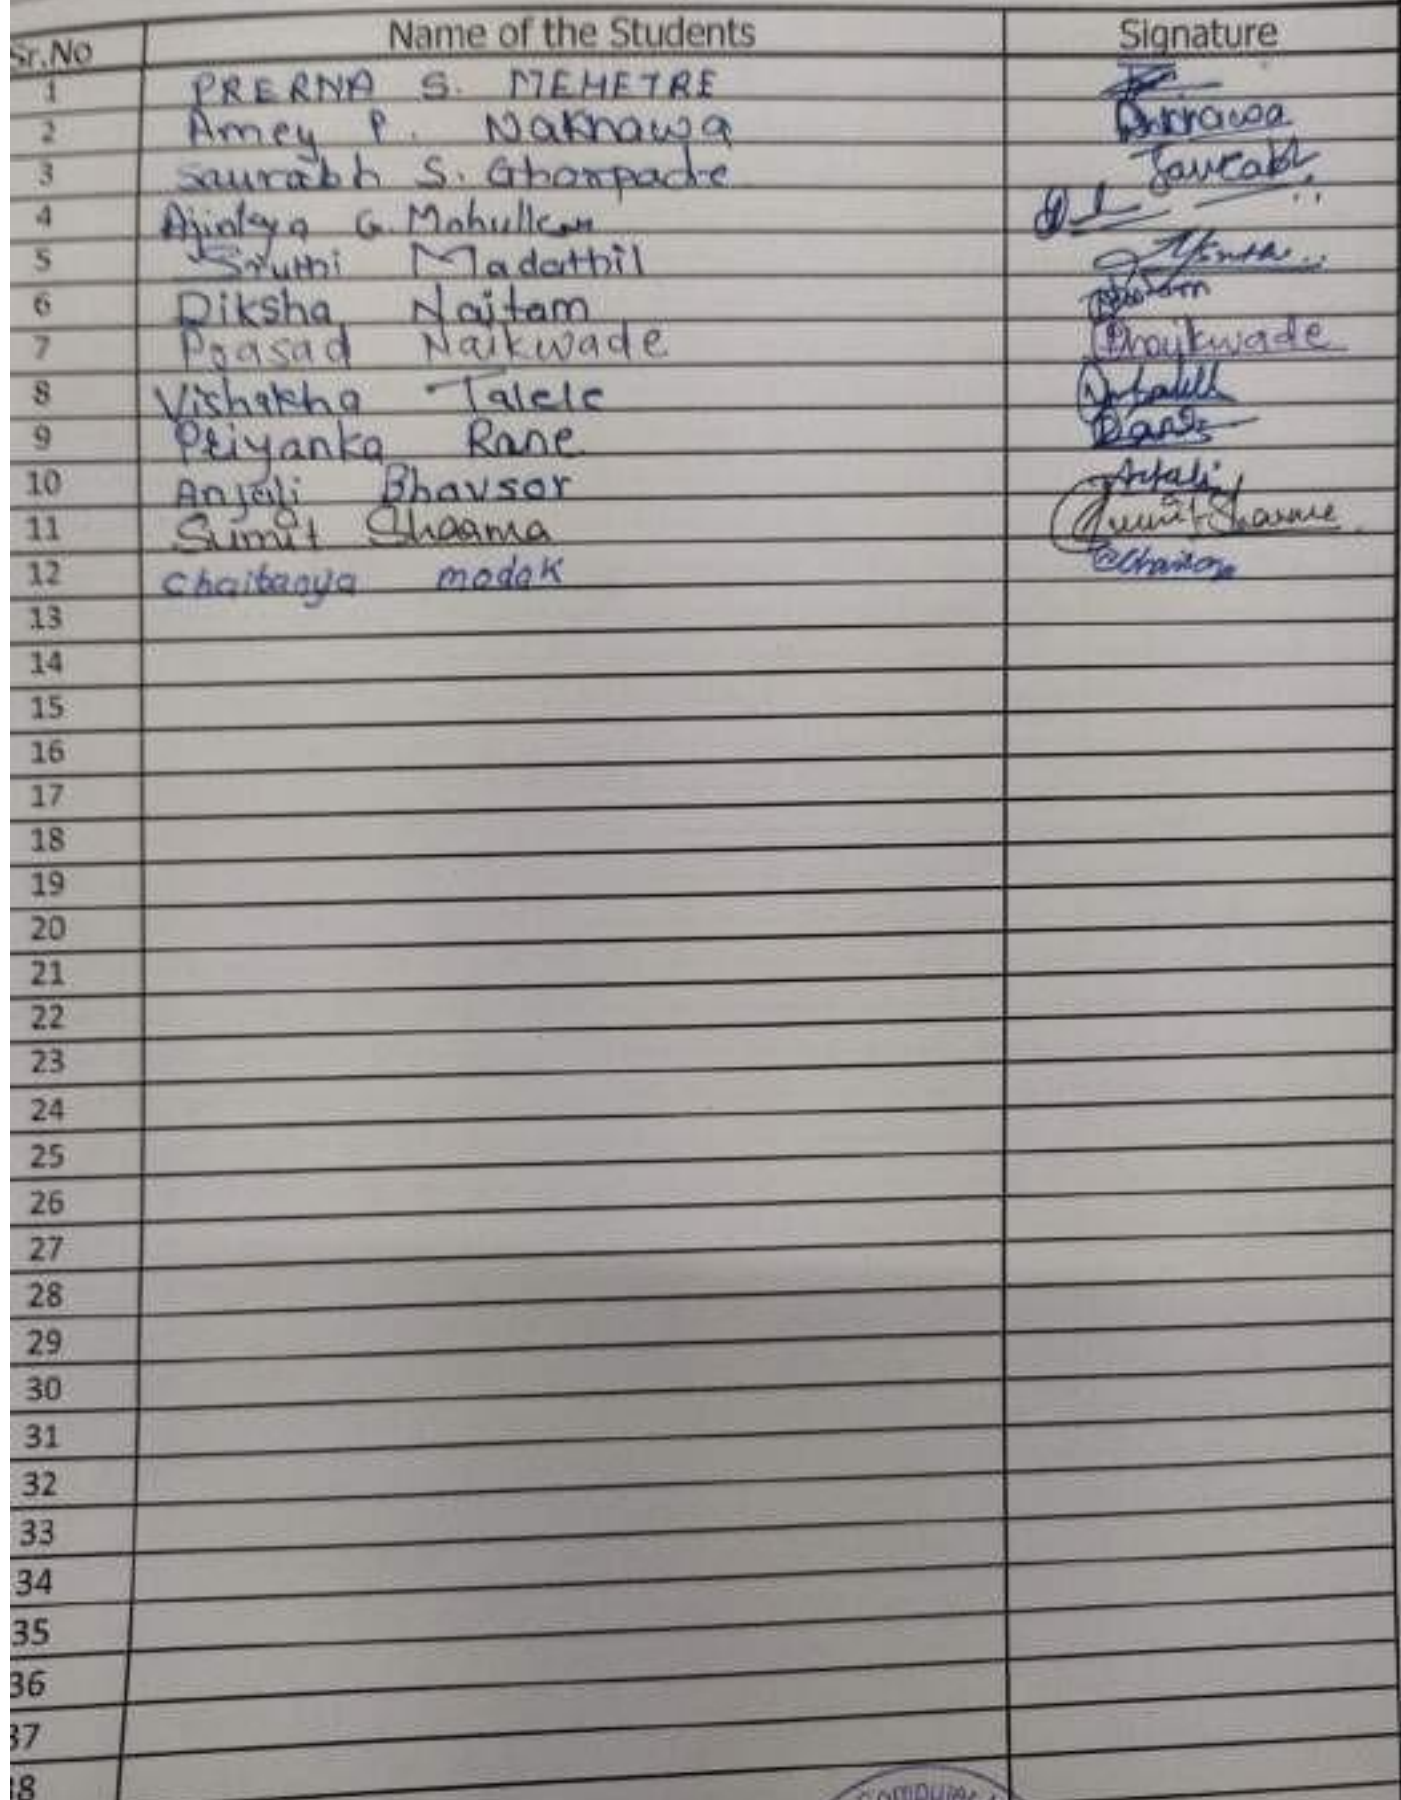 Sr.No Name of the Students Signature
1 PRERNA S. MEHETRE
2 Amey P. Nakhawa
3 Saurabh S. Ghorpade Saurabh
4 Ajinkya G. Mahulkar
5 Sruthi Madathil
6 Diksha Naitam
7 Prasad Naikwade Pnaikwade
8 Vishakha Talele
9 Priyanka Rane
10 Anjali Bhavsar Anjali
11 Sumit Sharma Sumit Sharma
12 Chaitanya modak
13
14
15
16
17
18
19
20
21
22
23
24
25
26
27
28
29
30
31
32
33
34
35
36
37
38